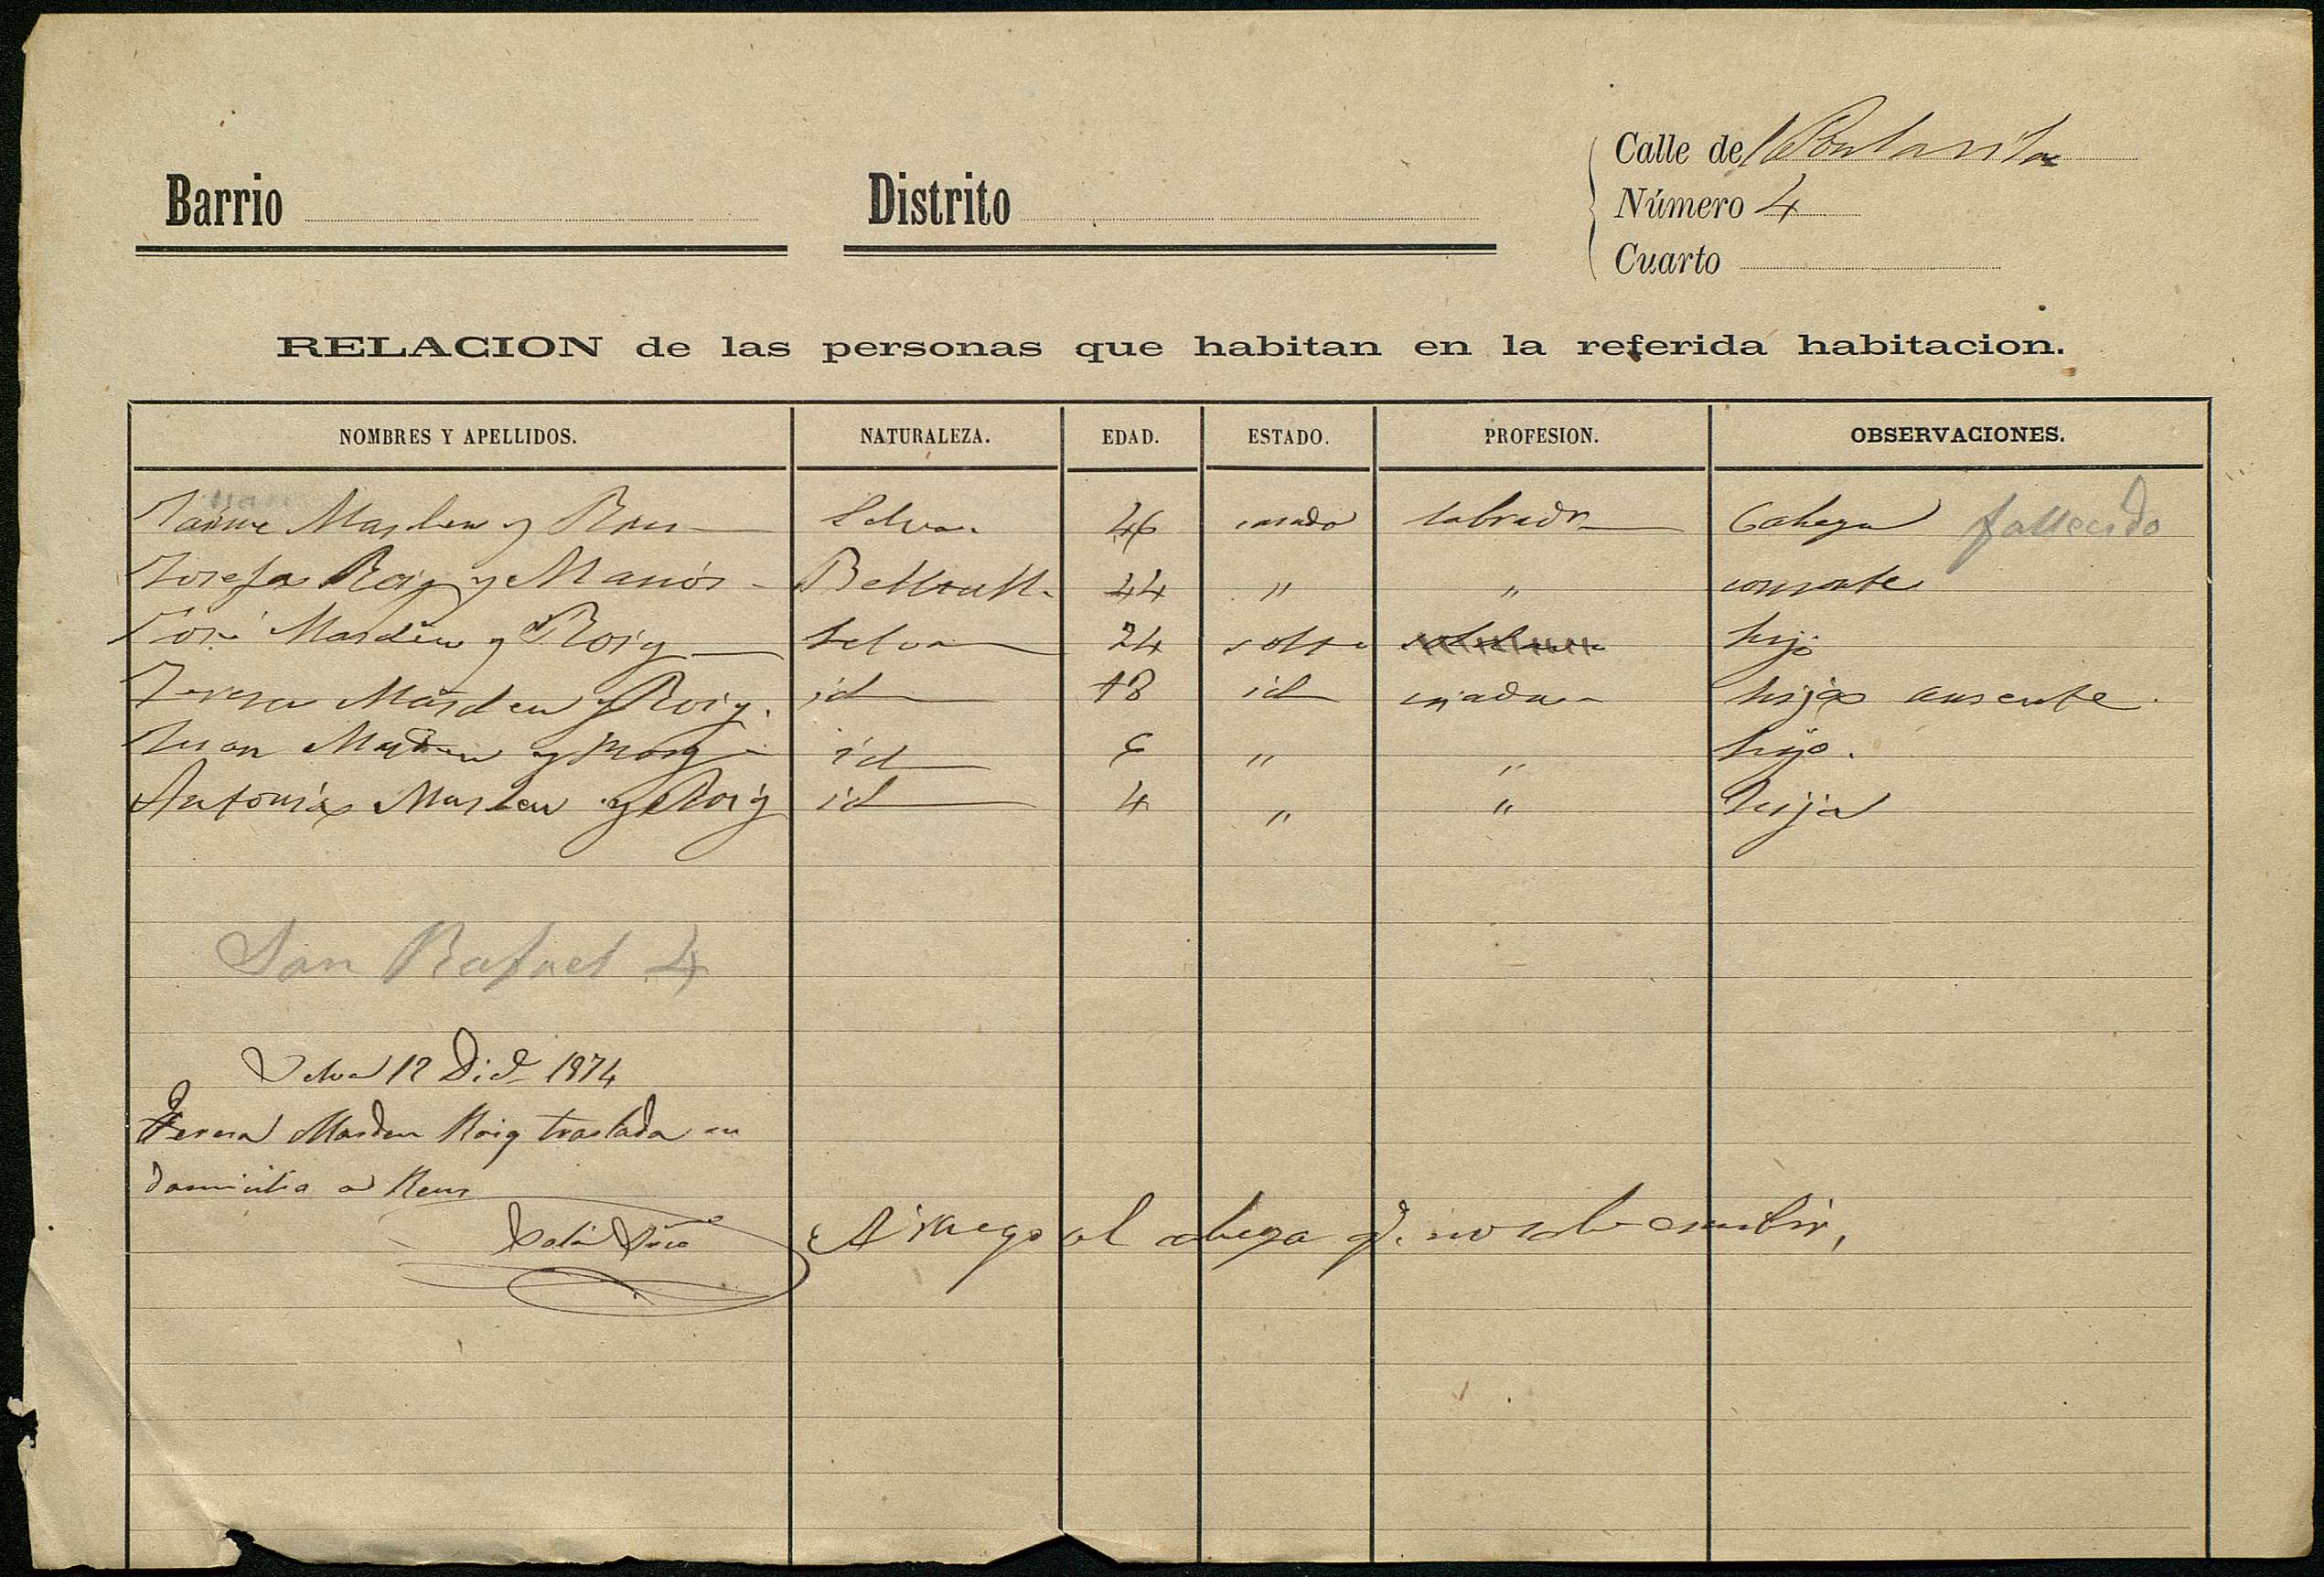 Calle de
Barrio Distrito Número 4
Cuarto
RELACION de las personas que habitan en la referida habitacion.
NOMBRES Y APELLIDOS. NATURALEZA. EDAD. ESTADO. PROFESION. OBSERVACIONES.
Jaime Masdeu y Selva 46 casado labrador Cabeza fallecido
Josefa Roig y Bellvell 44 " " consorte
José Masdeu y Roig Selva 24 solto hijo
Teresa Masdeu y Roig. id 18 id criada hija ausente.
Juan Masdeu y Roig id 6 " " hijo.
Antonia Masdeu y Roig id 4 " " hija
San Rafael 4
Selva 12 Dice 1874
Teresa Masdeu Roig traslada su
domicilio a Reus
A ruego al cabeza q. no sabe escribir,